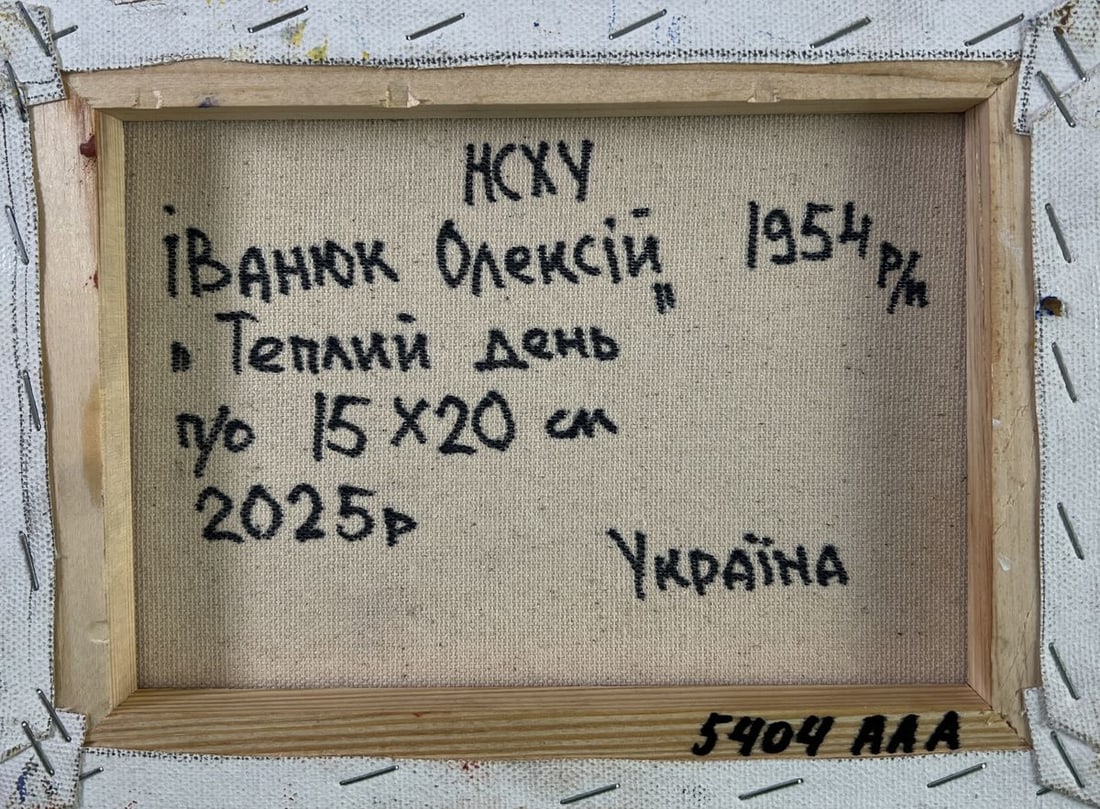 НСХУ
Іванюк Олексій 1954 р/н
„Теплий день"
п/о 15х20 см
2025р
Україна
5404 ААА